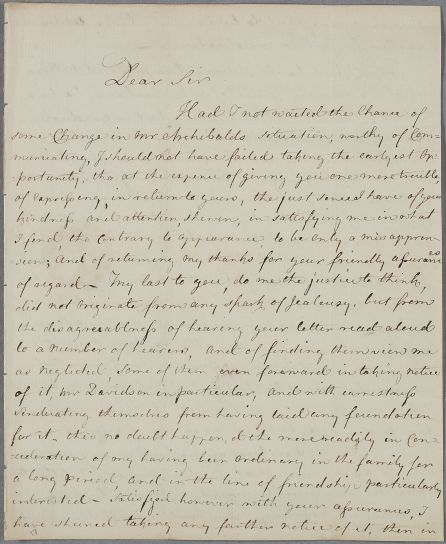 Dear Sir
Had I not waited the Chance of
some Change in Mr Archibalds Situation, worthy of Com=
=municating, I should not have failed taking the earlyest Op=
=portunity, tho at the expence of giving you one more trouble
of expressing, in return to yours, the just sense I have of your
kindness and attention, shewn, in satisfying me in what
I find, tho Contrary to appearance, to be only a misappren=
=sion; And of returning my thanks for your friendly assurances
of regard - My last to you, do me the justice to think,
did not originate from any spark of Jealousy, but from
the disagreeablness of hearing your letter read aloud
to a number of hearers, and of finding them view me
as neglected, some of them even forward in taking notice
of it, Mr Davidson in particular, and with earnestness
vindicating themselves from having laid any foundation
for it - this no doubt happen,d the more readily in Con=
=sideration of my having been Ordinary in the family for
a long period, and in the line of friendship particularly
interested - Satisfyed however with your assurances, I
have shuned taking any farther notice of it, then in